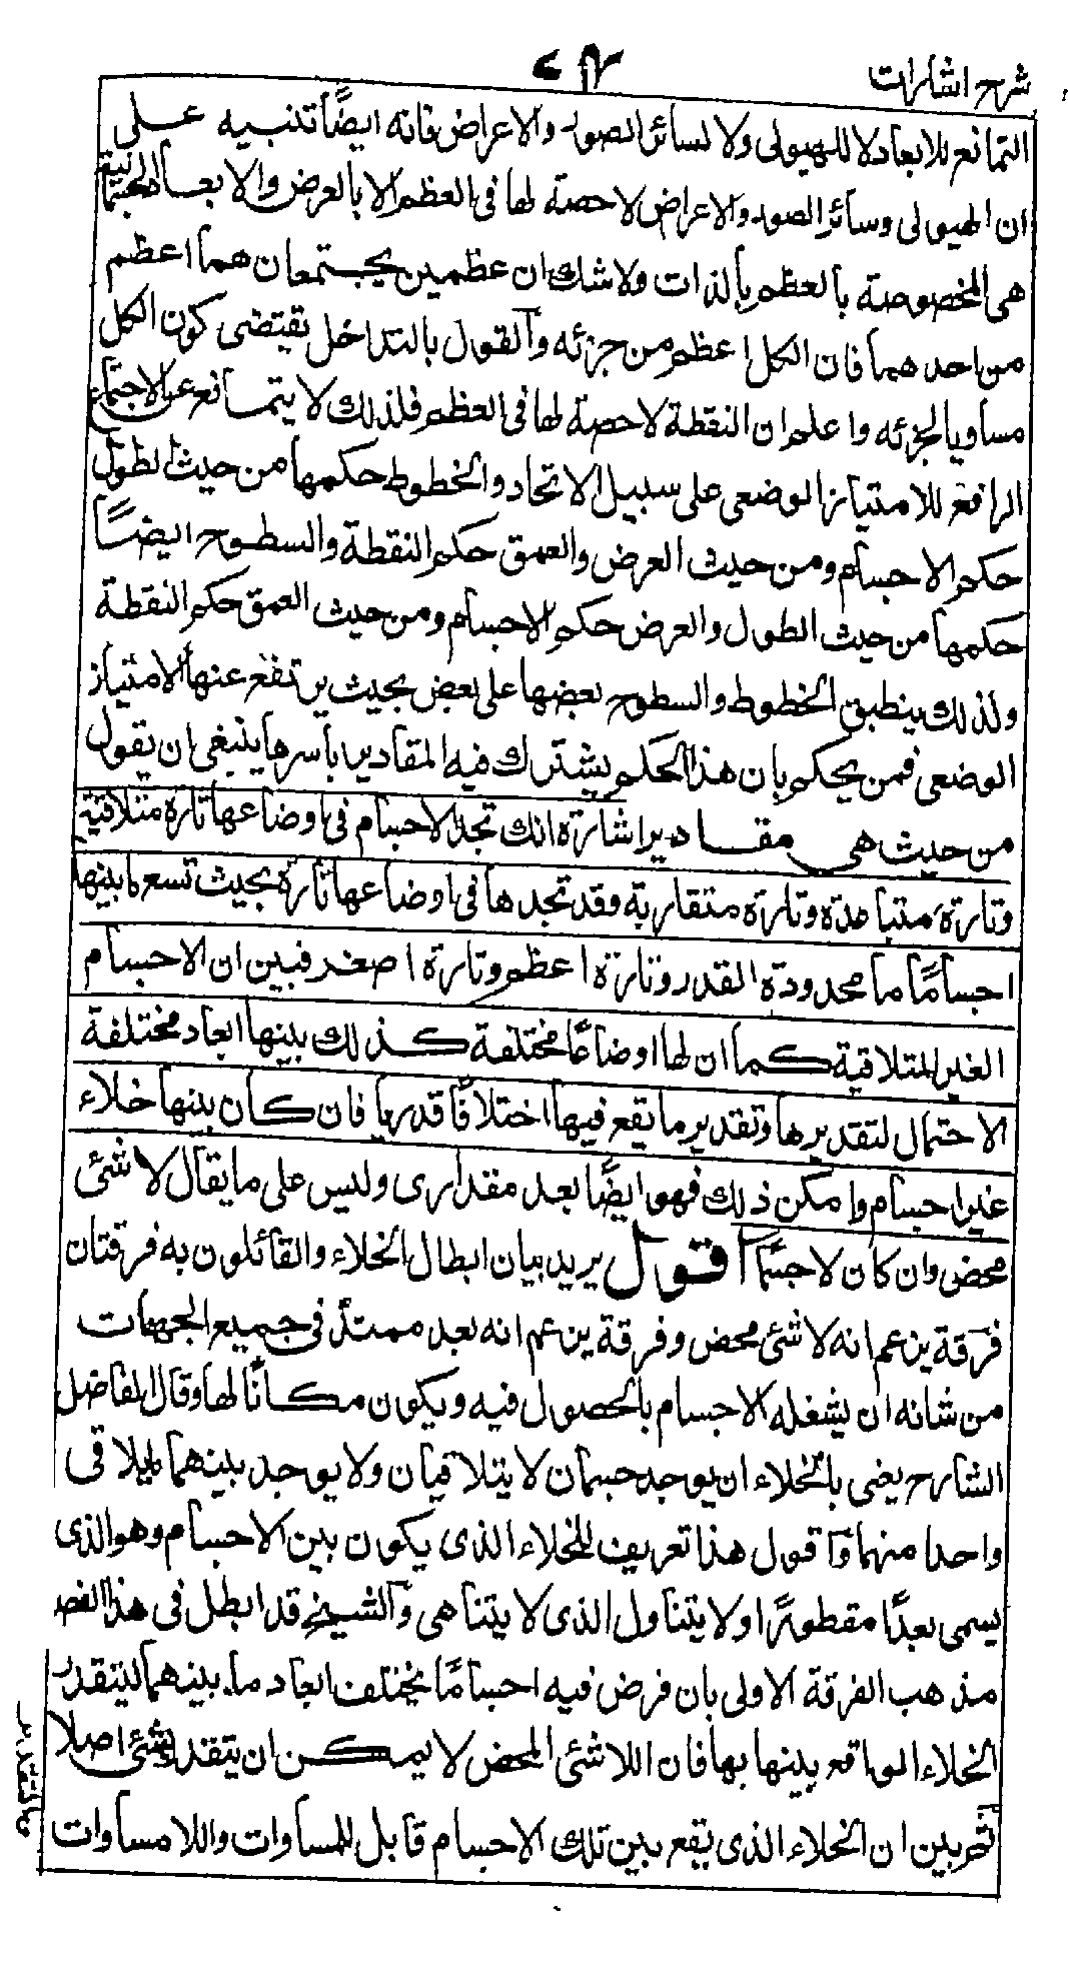 شرح اشارات
التمانع للابعاد لا للهيولى ولا لسائر الصور والاعراض فانه ايضًا تنبيه على
ان الهيولى وسائر الصور والاعراض لا حصة لها فى العظم الا بالعرض والابعاد الجسمانية
هى المخصوصة بالعظم بالذات ولا شك ان عظمين يجتمعان هما اعظم
من احدهما فان الكل اعظم من جزئه والقول بالتداخل يقتضى كون الكل
مساويا لجزئه واعلم ان النقطة لا حصة لها فى العظم فلذلك لا يتمانع عن الاجتماع
الرافع للامتياز الوضعى على سبيل الاتحاد والخطوط حكمها من حيث الطول
حكم الاجسام ومن حيث العرض والعمق حكم النقطة والسطوح ايضًا
حكمها من حيث الطول والعرض حكم الاجسام ومن حيث العمق حكم النقطة
ولذلك ينطبق الخطوط والسطوح بعضها على بعض بحيث يرتفع عنها الامتياز
الوضعى فمن يحكم بان هذا الحكم يشترك فيه المقادير باسرها ينبغى ان يقول
من حيث هى مقادير اشارة انك تجد الاجسام فى اوضاعها تارة متلاقية
وتارة متباعدة وتارة متقاربة وقد تجدها فى اوضاعها تارة بحيث تسع ما بينها
اجسامًا ما محدودة القدر وتارة اعظم وتارة اصغر فبين ان الاجسام
الغير المتلاقية كما ان لها اوضاعًا مختلفة كذلك بينها ابعاد مختلفة
الاحتمال لتقديرها وتقدير ما يقع فيها اختلافًا قدريا فان كان بينها خلاء
غير اجسام وامكن ذلك فهو ايضًا بعد مقدارى وليس على ما يقال لا شئ
محض وان كان لا جسمًا اقول يريد بيان ابطال الخلاء والقائلون به فرقتان
فرقة يزعم انه لا شئ محض وفرقة يزعم انه بعد ممتد فى جميع الجهات
من شانه ان يشغله الاجسام بالحصول فيه ويكون مكانًا لها وقال الفاضل
الشارح يعنى بالخلاء ان يوجد جسمان لا يتلاقيان ولا يوجد بينهما ما يلاقى
واحدا منهما واقول هذا تعريف للخلاء الذى يكون بين الاجسام وهو الذى
يسمى بعدًا مفطورًا ولا يتناول الذى لا يتناهى والشيخ قد ابطل فى هذا الفصل
مذهب الفرقة الاولى بان فرض فيه اجسامًا يختلف ابعاد ما بينهما ليتقدر
الخلاء الواقع بينها بها فان اللاشئ المحض لا يمكن ان يتقدر بشئ اصلا
ثم بين ان الخلاء الذى يقع بين تلك الاجسام قابل للمساوات واللا مساوات
والتقدير